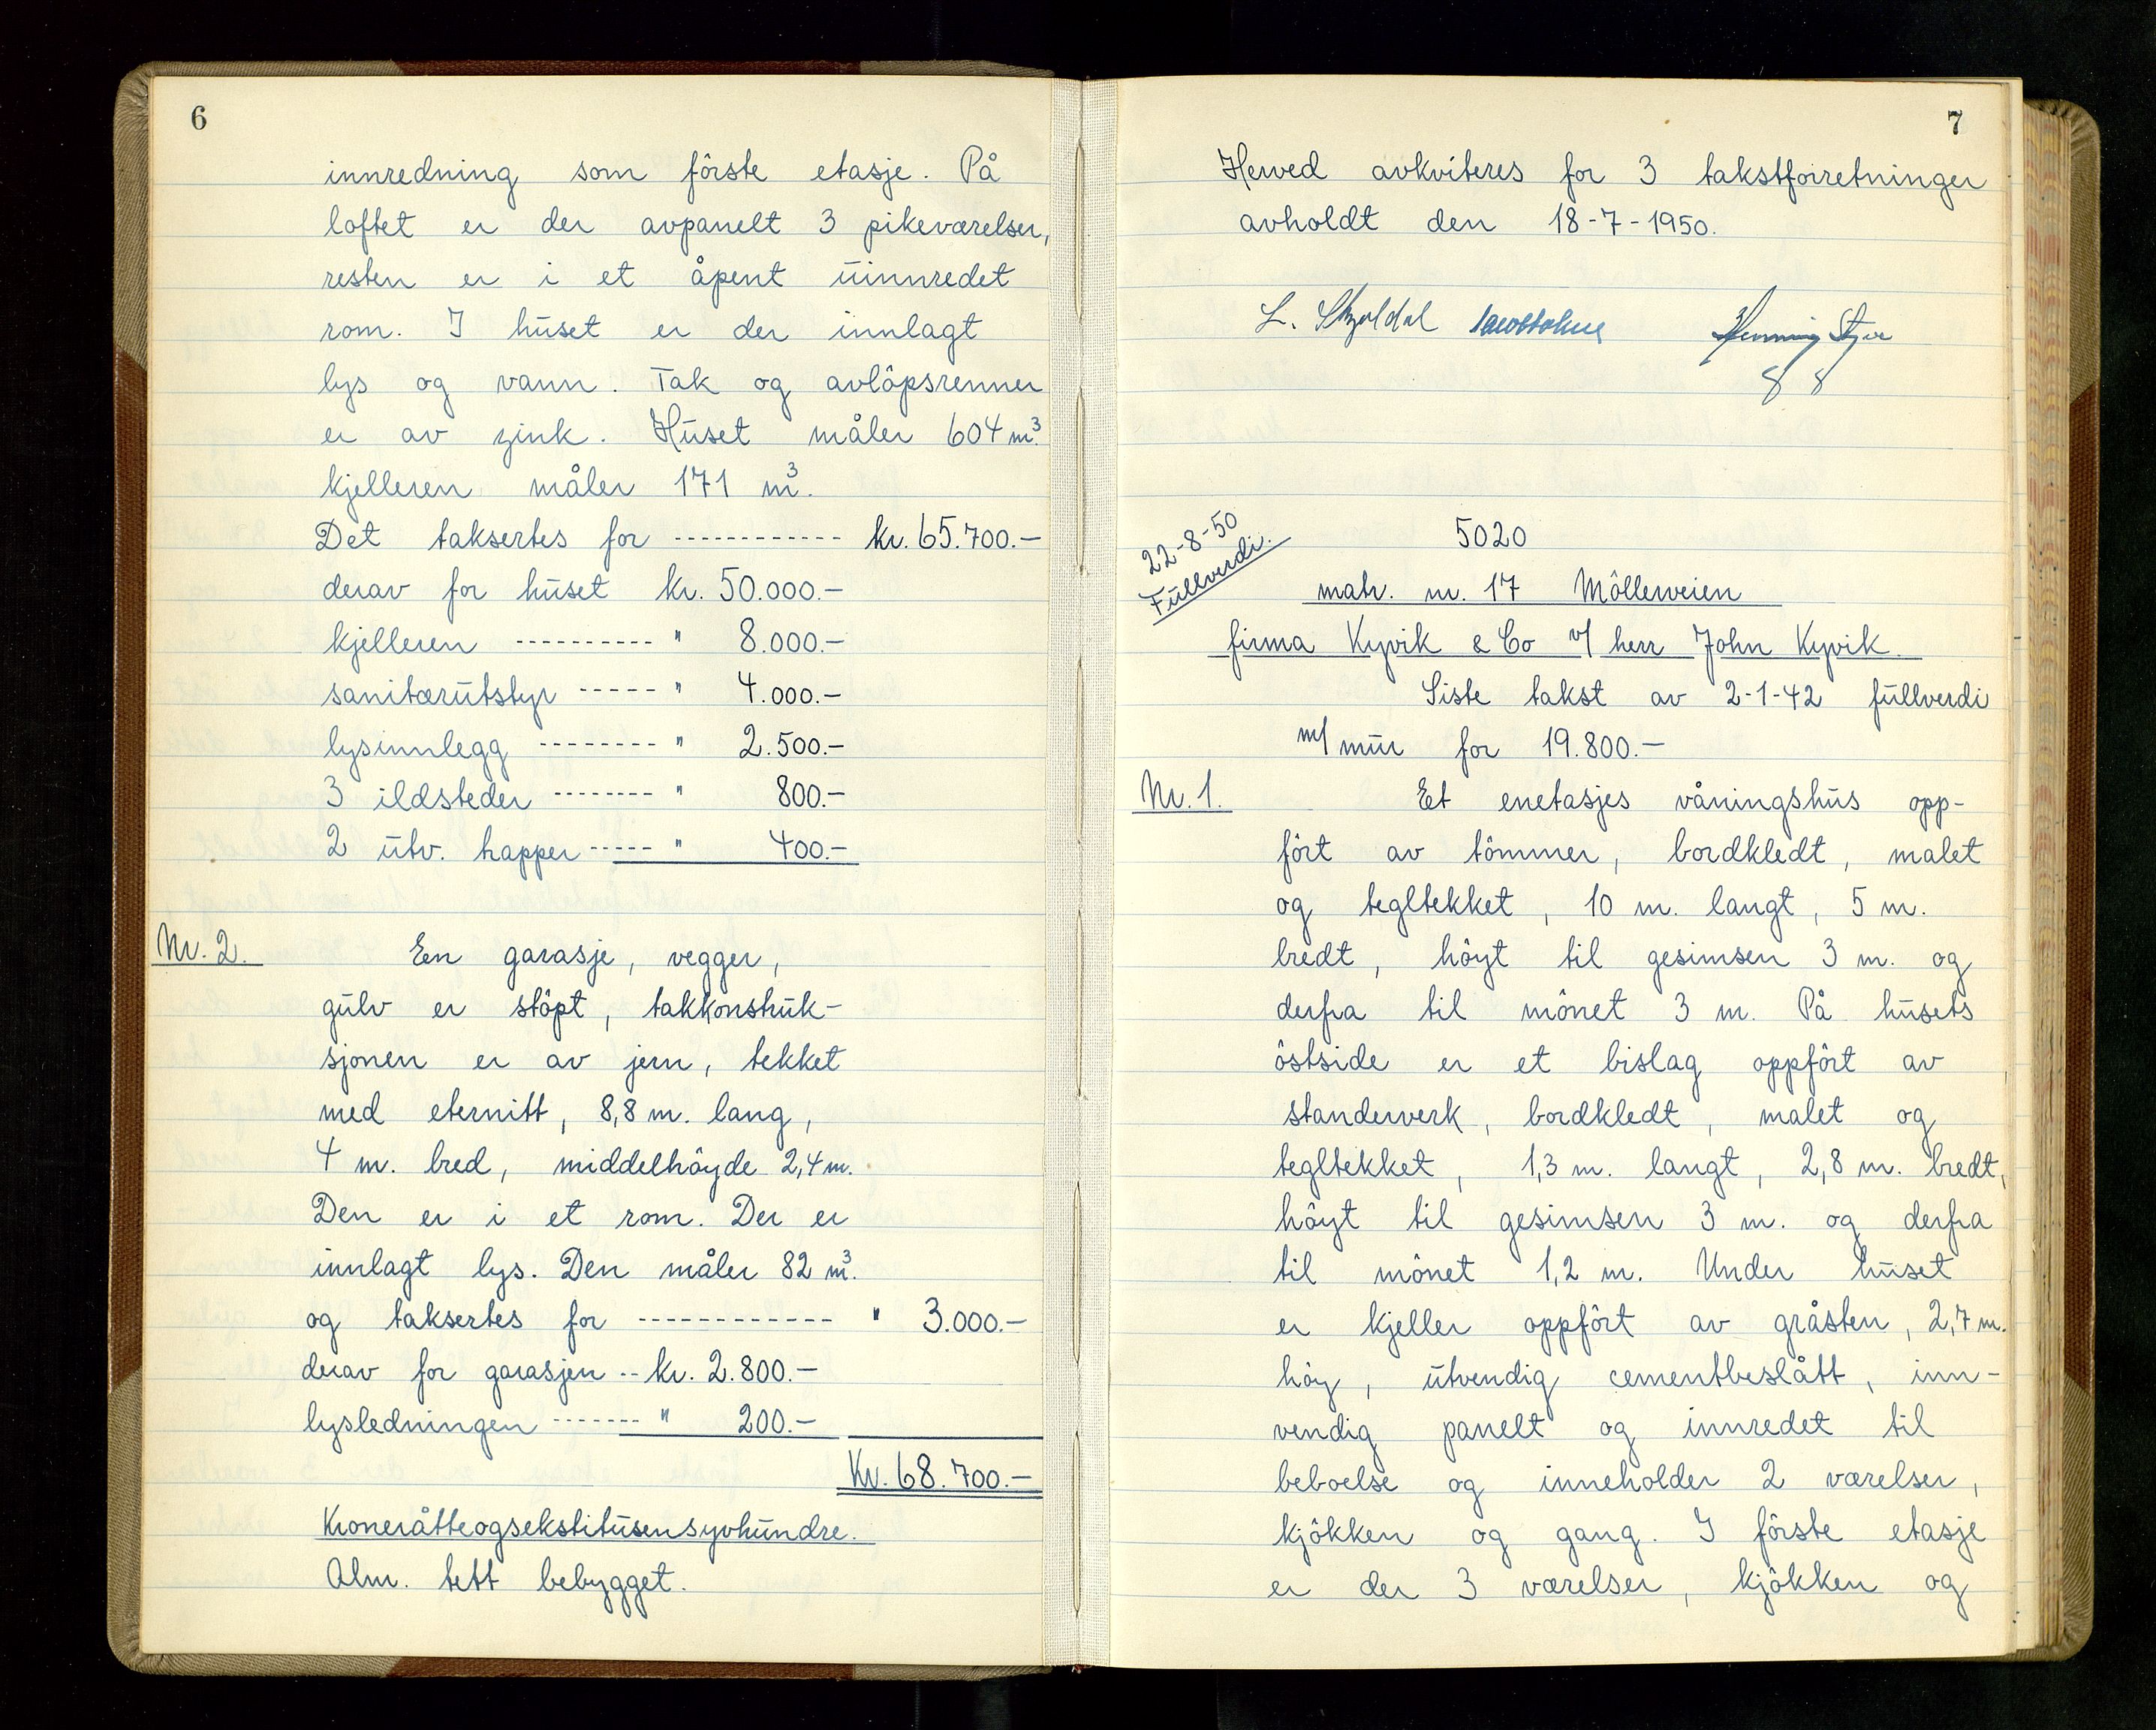 6
innredning som förste etasje. På
loftet er der avpanelt 3 pikeværelser,
resten er i et åpent uinnredet
rom. I huset er der innlagt
lys og vann. Tak og avlöpsrenner
er av zink. Huset måler 604 m³.
kjelleren måler 171 m³.
Det taksertes for ------------ kr. 65.700.-
derav for huset kr. 50.000.-
kjelleren ---------- " 8.000.-
sanitærutstyr ----- " 4.000.-
lysinnlegg -------- " 2.500.-
3 ildsteder -------- " 800.-
2 utv. trapper ----- " 400.-
Nr. 2. En garasje, vegger,
gulv er stöpt, takkonstruk-
sjonen er av jern, tekket
med eternitt, 8,8 m. lang,
4 m. bred, middelhöyde 2,4 m.
Den er i et rom. Der er
innlagt lys. Den måler 82 m³.
og taksertes for ------------ " 3.000.-
derav for garasjen -- kr. 2.800.-
lysledningen ------- " 200.-
Kr. 68.700.-
Kroneråtteogsekstitusensyvhundre.
Alm. tett bebygget.
7
Herved avkviteres for 3 takstforretninger
avholdt den 18-7-1950.
L. Skjoldal Henning
8 8
22-8-50
Fullverdi.
5020
matr. nr. 17 Mölleveien
firma Kyvik & Co v/ herr John Kyvik.
Siste takst av 2-1-42 fullverdi
m/ mur for 19.800.-
Nr. 1. Et enetasjes våningshus opp-
fört av tömmer, bordkledt, malet
og tegltekket, 10 m. langt, 5 m.
bredt, höyt til gesimsen 3 m. og
derfra til mönet 3 m. På husets
östside er et bislag oppfört av
standerverk, bordkledt, malet og
tegltekket, 1,3 m. langt, 2,8 m. bredt,
höyt til gesimsen 3 m. og derfra
til mönet 1,2 m. Under huset
er kjeller oppfört av gråsten, 2,7 m.
höy, utvendig cementbeslått, inn-
vendig panelt og innredet til
beboelse og inneholder 2 værelser,
kjökken og gang. I förste etasje
er der 3 værelser, kjökken og